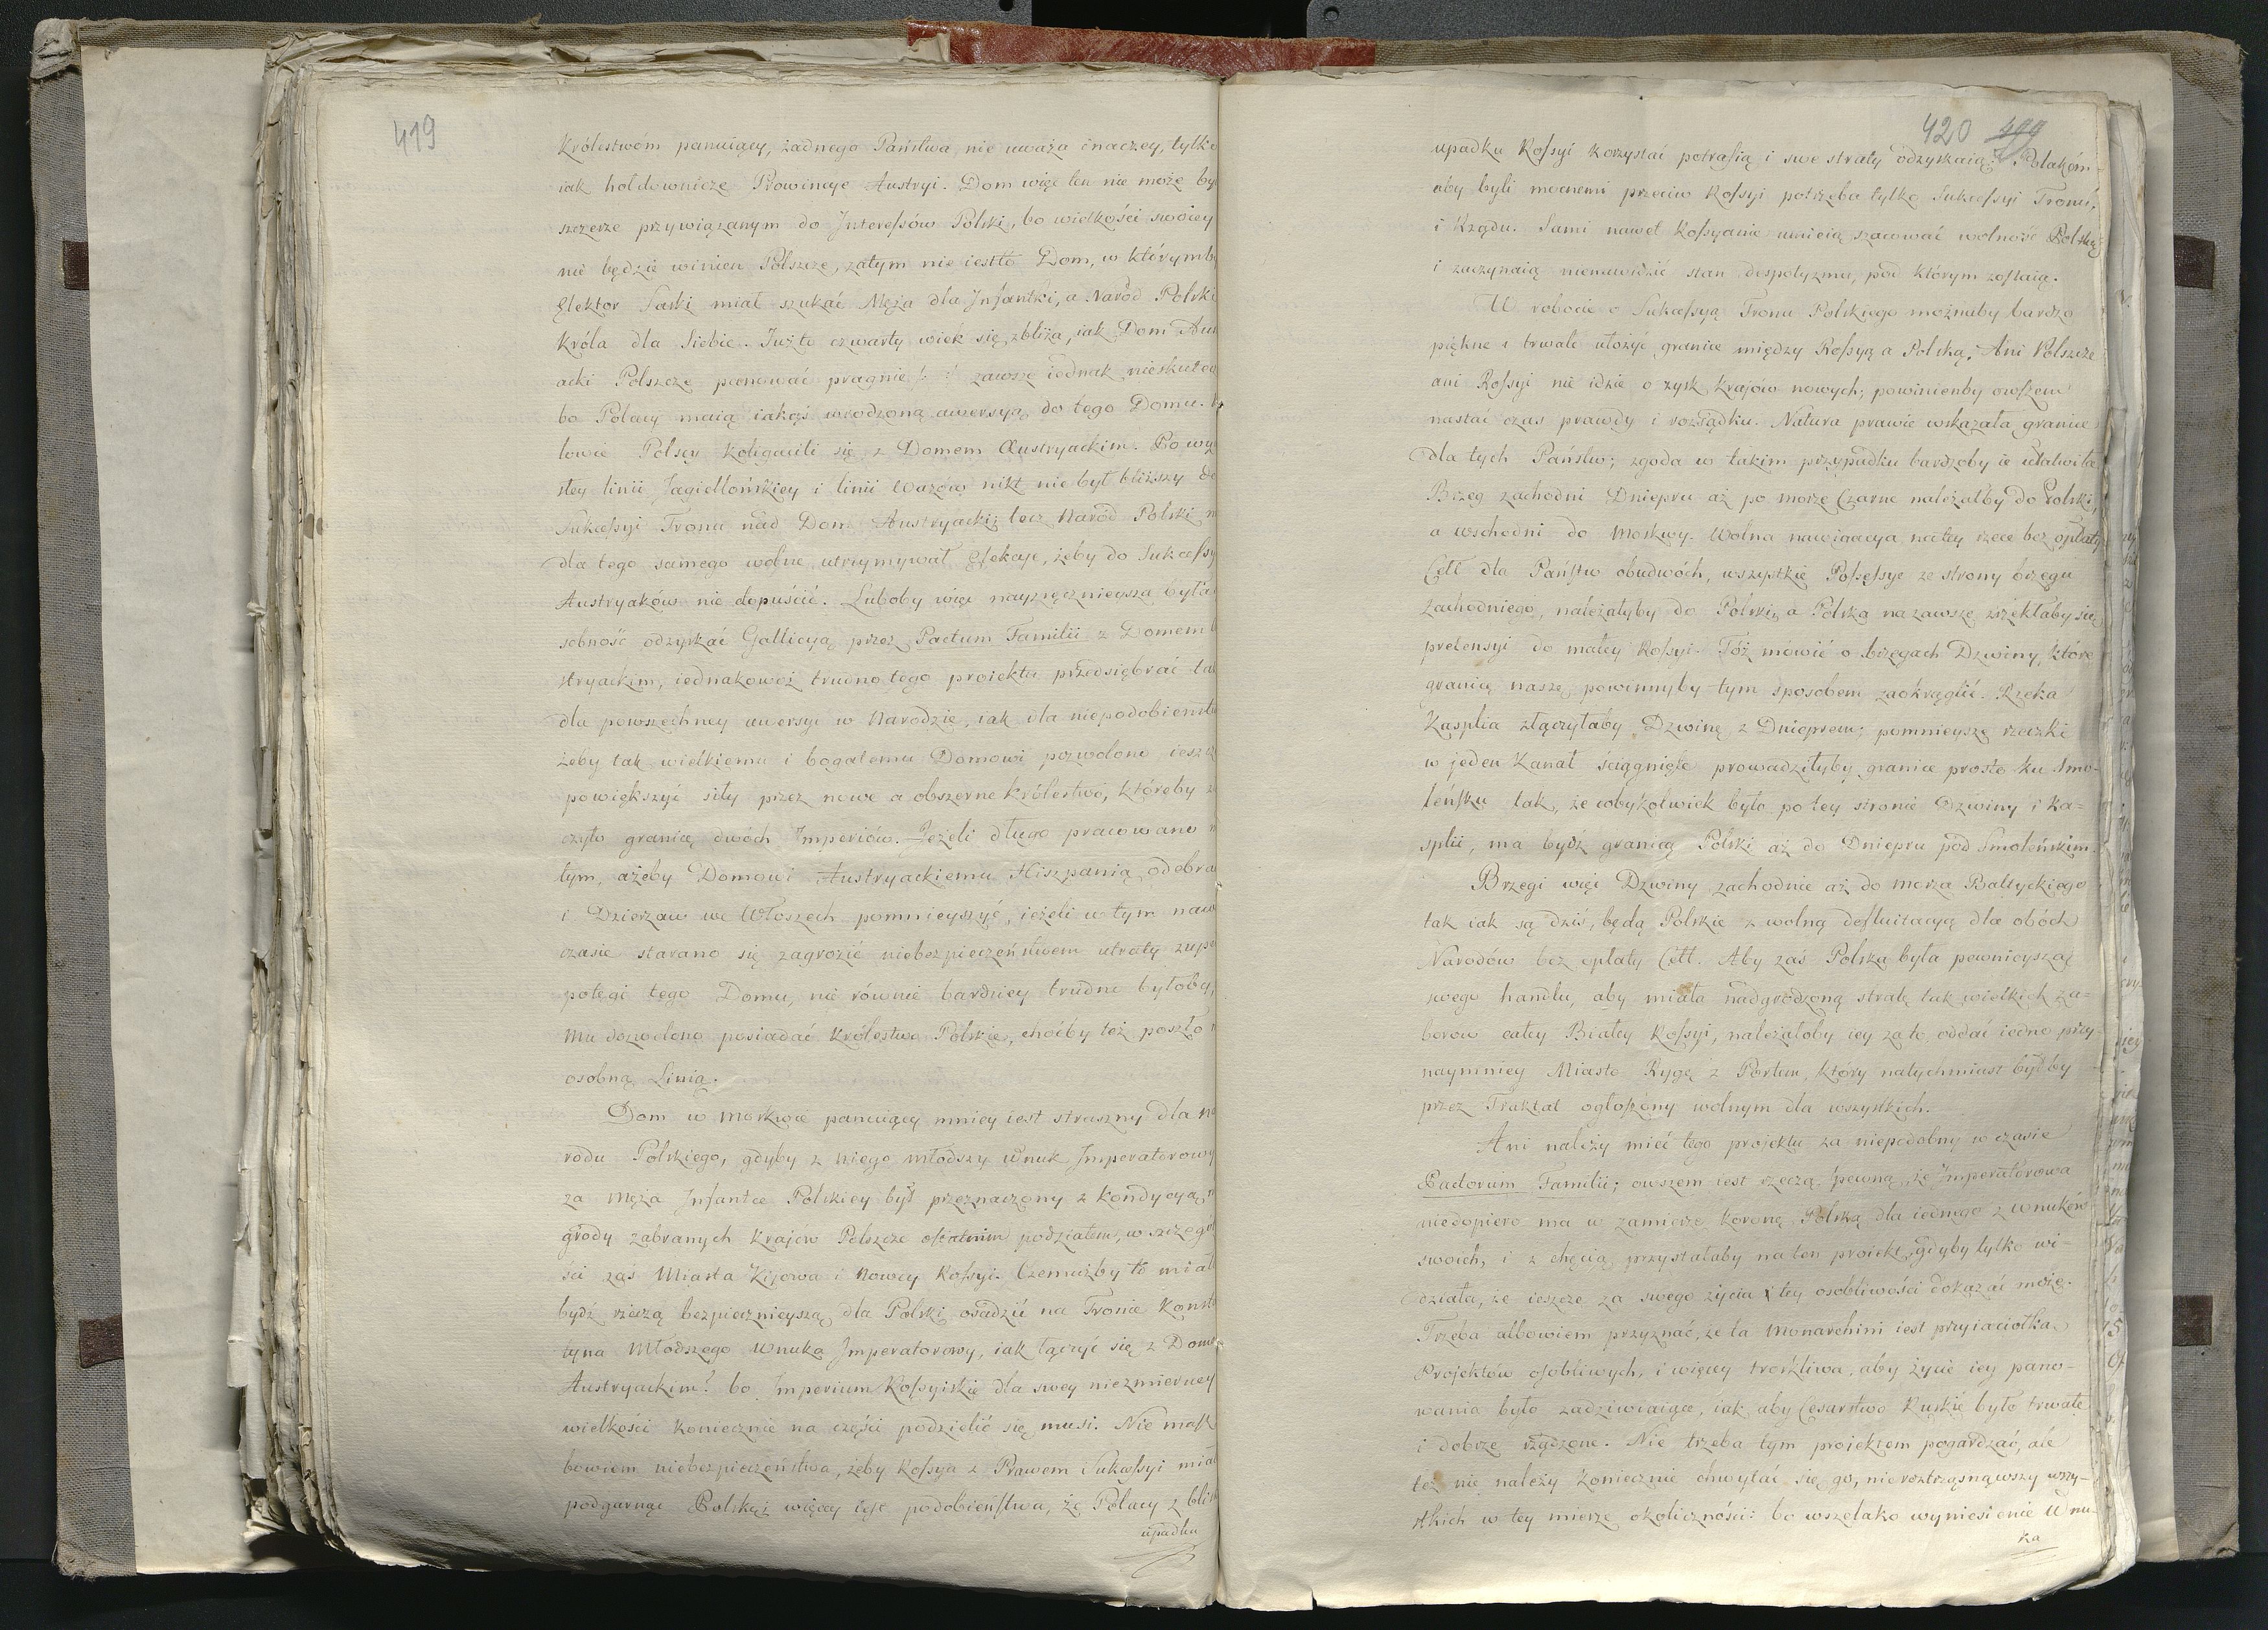 419
Królestwóm panuiący, żadnego Państwa nie uważa inaczey, tylko
iak hołdownicze Prowincye Austryi. Dom więc ten nie może by
szczerze przywiązanym do Interessów Polski, bo wielkości swoiey
nie będzie winien Polszcze, zatym nie iestto Dom, w którymby
Elektor Saski miał szukać Męża dla Infantki, a Naród Polski
Króla dla Siebie. Iużto czwarty wiek się zbliża, iak Dom Aus
acki Polszcze panować pragnie /: :/ zawsze iednak nieskutec
bo Polacy maią iakąś wrodzoną awersyą do tego Domu.
lowie Polscy koligacili się z Domem Austryackim. Po wy
słey linii Jagiellońskiey i linii Wazów nikt nie był bliższy do
Sukcessyi Tronu nad Dom Austryacki; lecz Naród Polski
dla tego samego wolne utrzymywał Elekcye, żeby do Sukcessy
Austryaków nie dopuścić. Luboby więc nayzręcznieysza była
sobność odzyskać Gallicyą przez Pactum Familii z Domem
stryackim, iednakowoż trudno tego proiektu przedsiębrać tak
dla powszechney awersyi w Narodzie, iak dla niepodobieństw
żeby tak wielkiemu i bogatemu Domowi pozwolono ieszcz
powiększyć siły przez nowe a obszerne królestwo, któreby
czyło granicę dwóch Imperiów. Jeżeli długo pracowano
tym, ażeby Domowi Austryackiemu Hiszpanią odebra
i Dzierzaw we Włoszech pomnieyszyć, ieżeli w tym naw
czasie starano się zagrozić niebezpieczeństwem utraty zupe
potęgi tego Domu, nie równie bardziey trudno byłoby,
mu dozwolono posiadać Królestwo Polskie, choćby też poszło
osobną Linią.
Dom w Moskwie panuiący mniey iest straszny dla Na
rodu Polskiego, gdyby z niego młodszy Wnuk Imperatorowy
za Męża Infantce Polskiey był przeznaczony z kondycyą
grody zabranych Krajów Polszcze ostatnim podziałem, w szczegól
ści zaś Miasta Kijowa i Nowey Rossyi. Czemużby to miał
bydź rzeczą bezpiecznieyszą dla Polski osadzić na Tronie Konsta
tyna Młodszego Wnuka Imperatorowy, iak łączyć się z Dome
Austryackim? bo Imperium Rossyiskie dla swey niezmierney
wielkości koniecznie na części podzielić się musi. Nie masz
bowiem niebezpieczeństwa, żeby Rossya z Prawem Sukcessyi miał
podgarnąć Polskę; więcey iest podobieństwa, że Polacy z blis
upadku
420 499
upadku Rossyi korzystać potrafią i swe straty odzyskaią. Polakóm
aby byli mocnemi przeciw Rossyi potrzeba tylko Sukcessyi Tronu,
i Rządu. Sami nawet Rossyanie umieią szacować wolność Polską
i zaczynaią nienawidzić stan despotyzmu, pod którym zostaią.
W robocie o Sukcessyą Tronu Polskiego możnaby bardzo
piękne i trwałe ułożyć granice między Rossyą a Polską. Ani Polszcze
ani Rossyi nie idzie o zysk krajów nowych; powinienby owszem
nastać czas prawdy i rozsądku. Natura prawie wskazała granice
dla tych Państw; zgoda w takim przypadku bardzoby ie ułatwiła
Brzeg zachodni Dniepru aż po morze Czarne należałby do Polski,
a wschodni do Moskwy. Wolna nawigacya na tey rzece bez opłaty
Cełł dla Państw obudwóch, wszystkie Possessye ze strony brzegu
zachodniego, należałyby do Polski, a Polska na zawsze zrzekłaby się
pretensyi do małey Rossyi. Tóż mówić o brzegach Dzwiny, które
granicę naszę powinnyby tym sposobem zaokrąglić. Rzeka
Kasplia złączyłaby Dzwinę z Dnieprem; pomnieysze rzeczki
w jeden Kanał ściągnięte prowadziłyby granice prosto ku Smo-
leńsku tak, że cobykolwiek było po tey stronie Dzwiny i Ka=
splii, ma bydź granicą Polski aż do Dniepru pod Smoleńskim.
Brzegi więc Dzwiny zachodnie aż do morza Baltyckiego
tak iak są dziś, będą Polskie z wolną defluitacyą dla obóch
Narodów bez opłaty Cełł. Aby zaś Polska była pewnieyszą
swego handlu, aby miała nadgrodzoną stratę tak wielkich za-
borow całey Białey Rossyi, należałoby iey za to oddać iedno przy-
naymniey Miasto Rygę z Portem, który natychmiast byłby
przez Traktat ogłoszony wolnym dla wszystkich.
Ani należy mieć tego projektu za niepodobny w czasie
Pactorum Familii; owszem iest rzeczą pewną, że Imperatorowa
niedopiero ma w zamierze koronę Polską dla iednego z wnuków
swoich, i z chęcią przystałaby na ten proiekt, gdyby tylko wi-
działa, że ieszcze za swego życia i tey osobliwości dokazać może.
Trzeba albowiem przyznać, że ta Monarchini iest przyiaciółka
Projektów osobliwych, i więcey troskliwa, aby życie iey pano-
wania było zadziwiaiące, iak aby Cesarstwo Ruskie było trwałe
i dobrze rządzone. Nie trzeba tym proiektem pogardzać, ale
też nie należy koniecznie chwytać się go, nieroztrząsnąwszy wszy-
stkich w tey mierze okoliczności: bo wszelako wyniesienie Wnu-
ka